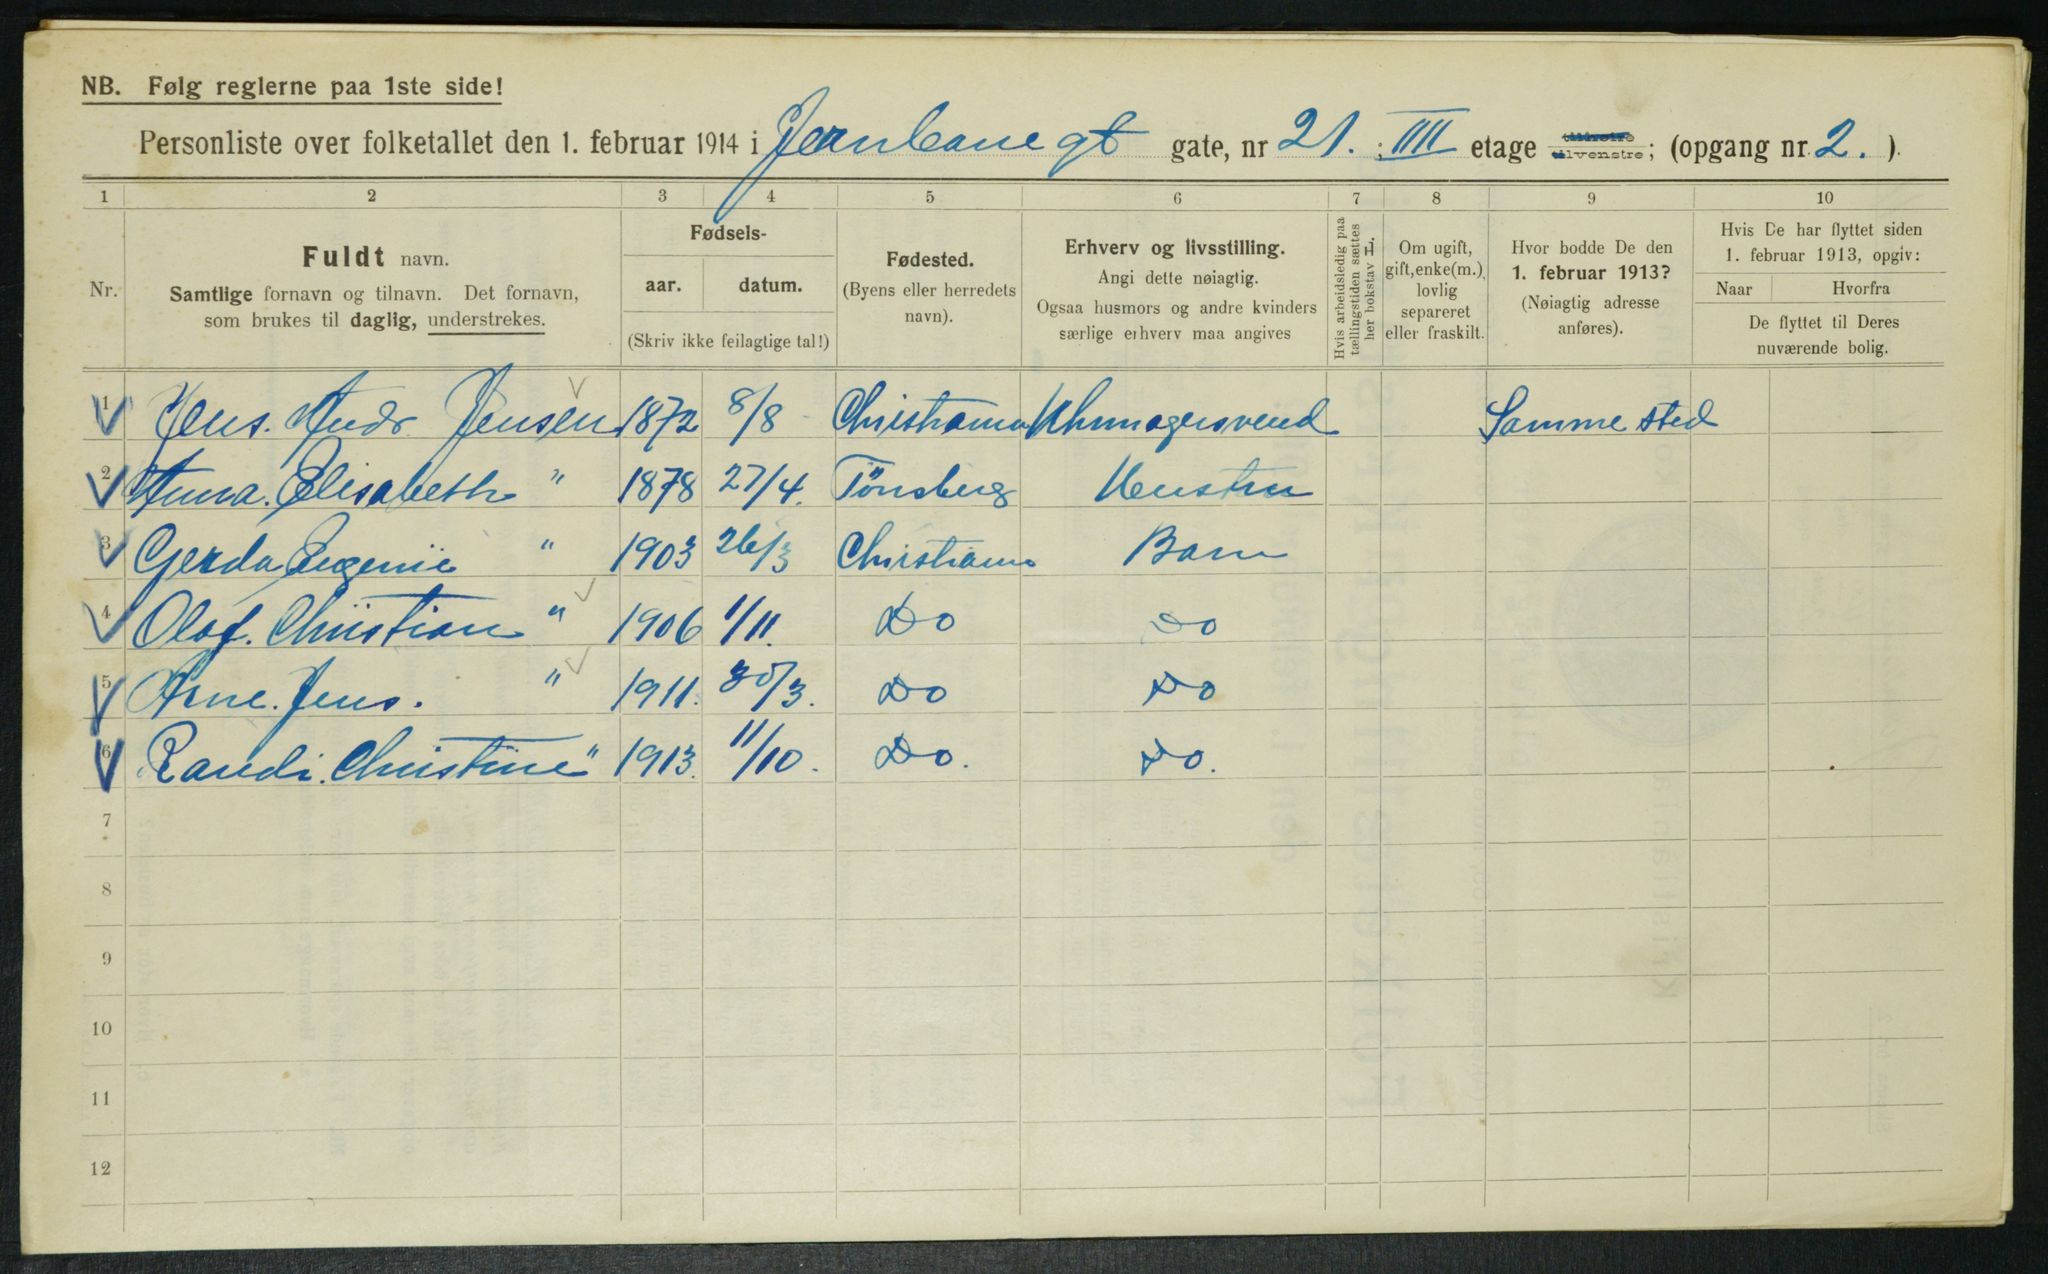 NB. Følg reglerne paa 1ste side!
Personliste over folketallet den 1. februar 1914 i Jernbane gt gate, nr 21. ; IIII etage tilhøire tilvenstre; (opgang nr. 2. ).
1 2 3 4 5 6 7 8 9 10
Nr.
Fuldt navn.
Samtlige fornavn og tilnavn. Det fornavn,
som brukes til daglig, understrekes.
Fødsels-
aar. datum.
(Skriv ikke feilagtige tal!)
Fødested.
(Byens eller herredets
navn).
Erhverv og livsstilling.
Angi dette nøiagtig.
Ogsaa husmors og andre kvinders
særlige erhverv maa angives
Hvis arbeidsledig paa
tællingstiden sættes
her bokstav L.
Om ugift,
gift, enke(m.),
lovlig
separeret
eller fraskilt.
Hvor bodde De den
1. februar 1913?
(Nøiagtig adresse
anføres).
Hvis De har flyttet siden
1. februar 1913, opgiv:
Naar Hvorfra
De flyttet til Deres
nuværende bolig.
1 Jens. Andr Jensen 1872 8/8 Christiania Uhrmagersvend Samme sted
2 Anna. Elisabeth " 1878 27/4. Tönsberg Hustru
3 Gerda Eugenie " 1903 26/3 Christiania Barn
4 Olaf. Christian " 1906 1/11. Do Do
5 Arne. Jens. " 1911. 30/3. Do Do
6 Randi. Christine " 1913. 11/10. Do. Do.
7
8
9
10
11
12